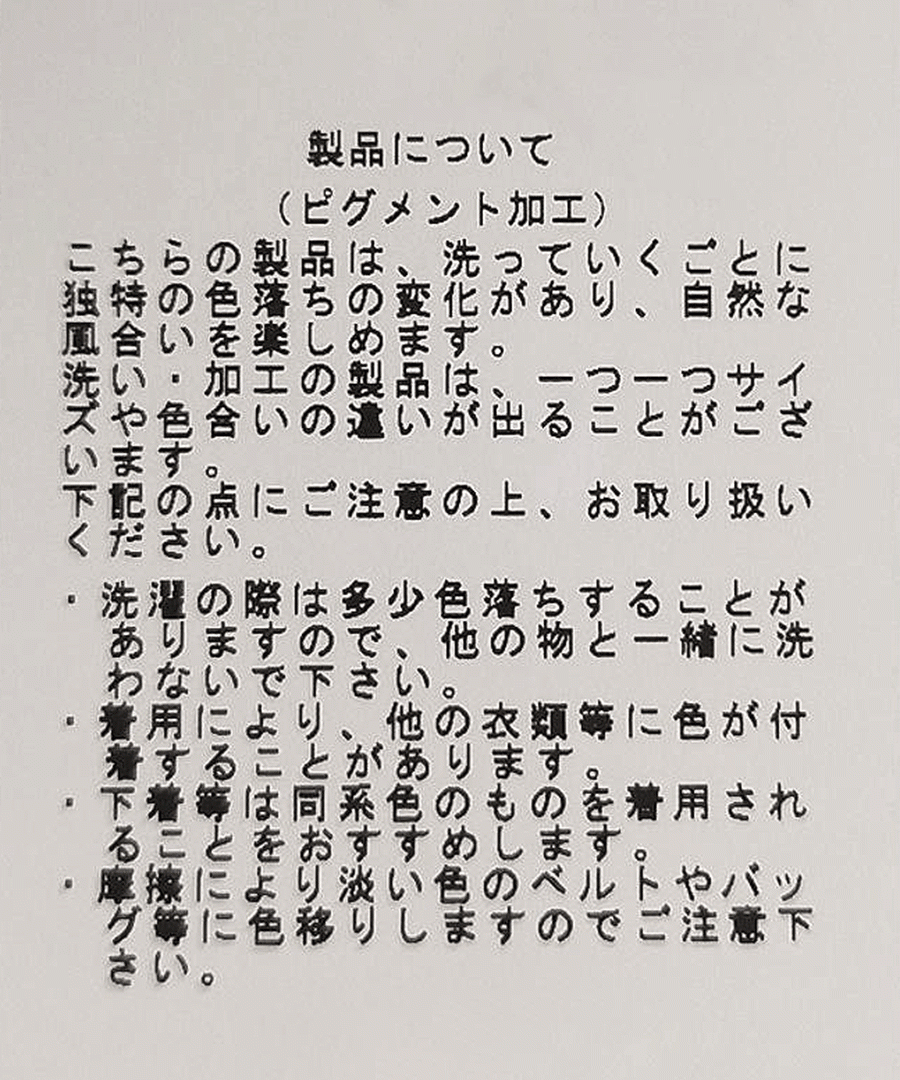 製品について
(ピグメント加工)
こちらの製品は、洗っていくごとに
独特の色落ちの変化があり、自然な
風合いを楽しめます。
洗い・加工の製品は、一つ一つサイ
ズや色合いの違いが出ることがござ
います。
下記の点にご注意の上、お取り扱い
ください。
・洗濯の際は多少色落ちすることが
ありますので、他の物と一緒に洗
わないで下さい。
・着用により、他の衣類等に色が付
着することがあります。
・下着等は同系色のものを着用され
ることをおすすめします。
・摩擦により淡い色のベルトやバッ
グ等に色移りしますのでご注意下
さい。